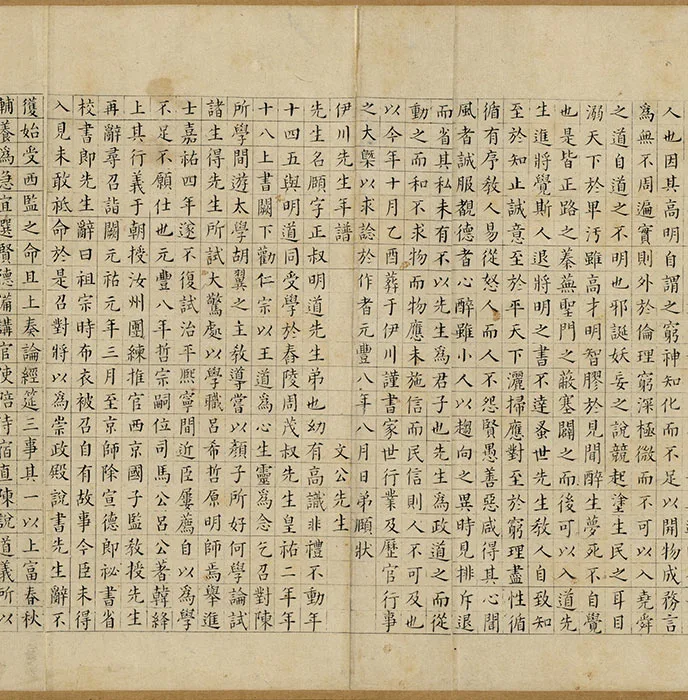 人也因其高明自謂之窮神知化而不足以開物成務言
為無不周遍實則外於倫理窮深極微而不可以入堯舜
之道自道之不明也邪誕妖妄之說競起塗生民之耳目
溺天下於卑汚雖高才明智膠於見聞醉生夢死不自覺
也是皆正路之蓁蕪聖門之蔽塞闢之而後可以入道先
生進將覺斯人退將明之書不達蚤世先生教人自致知
至於知止誠意至於平天下灑掃應對至於窮理盡性循
循有序教人易從怒人而人不怨賢愚善惡咸得其心聞
風者誠服覿德者心醉雖小人以趨向之異時見排斥退
而省其私未有不以先生為君子也先生為政道之而從
動之而和不求物而物應未施信而民信則人不可及也
以今年十月乙酉葬于伊川謹書家世行業及歷官行事
之大槩以求誌於作者元豐八年八月日弟頤狀
伊川先生年譜 文公先生
先生名頤字正叔明道先生弟也幼有高識非禮不動年
十四五與明道同受學於舂陵周茂叔先生皇祐二年年
十八上書闕下勸仁宗以王道為心生靈為念乞召對陳
所學間遊太學胡翼之主教導嘗以顏子所好何學論試
諸生得先生所試大驚處以學職呂希哲原明師焉舉進
士嘉祐四年遂不復試治平熙寧間近臣屢薦自以為學
不足不願仕也元豐八年哲宗嗣位司馬公呂公著韓絳
上其行義于朝授汝州團練推官西京國子監教授先生
再辭尋召詣闕元祐元年三月至京師除宣德郎祕書省
校書郎先生辭曰祖宗時布衣被召自有故事今臣未得
入見未敢祗命於是召對將以為崇政殿說書先生辭不
獲始受西監之命且上奏論經筵三事其一以上富春秋
輔養為急宜選賢德備講官使陪侍宿直陳說道義所以